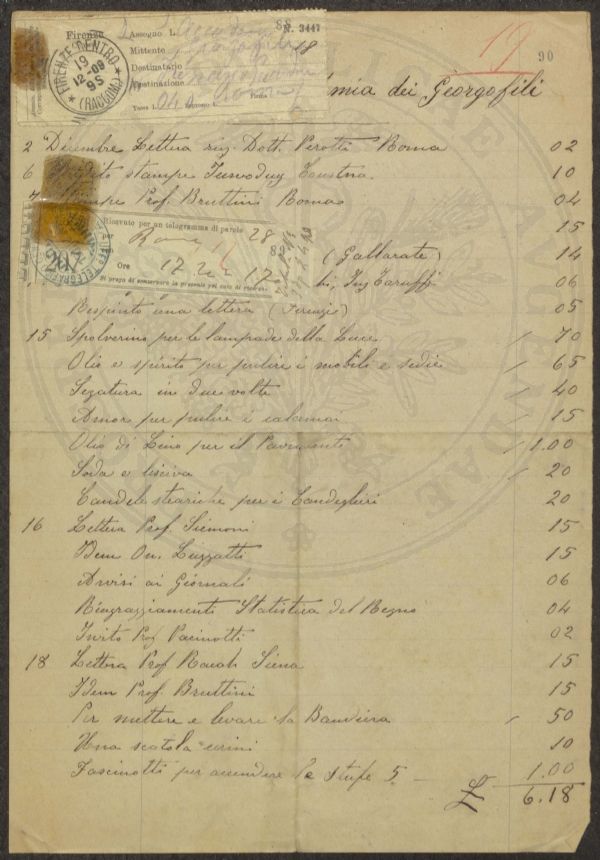 Firenze Assegno L. 88 N. 3447
Mittente 18
Destinatario
Destinazione
Tassa L.
FIRENZE CENTRO
19
12-09
9S
(RACCOM.)
19
90
mia dei Georgofili
2 Dicembre Lettera Dott. Perotti Roma 02
6 stampe 10
7 Stampe Prof. Bruttini Roma 04
15
Ricevuto per un telegramma di parole 28
per Roma
Ore 17
Si prega di conservare la presente pel caso di ricorso.
(Gallarate) 14
Ing Taruffi 06
Respinto una lettera (Firenze) 05
15 Spolverino per le lampade della Luce 70
Olio e spirito per pulire i mobili e sedie 65
Segatura in due volte 40
Amor per pulire i calamai 15
Olio di Lino per il Pavimenti 1.00
Soda e lisciva 20
Candele steariche per i Candeglieri 20
16 Lettera Prof. Siemoni 15
Idem On. Luzzatti 15
Avvisi ai Giornali 06
Ringraziamenti Statistica del Regno 04
Invito Prof Pacinotti 02
18 Lettera Prof Siena 15
Idem Prof. Bruttini 15
Per mettere e levare la Bandiera 50
Una scatola cerini 10
Fascinotti per accendere le stufe 5 1.00
£ 6.18